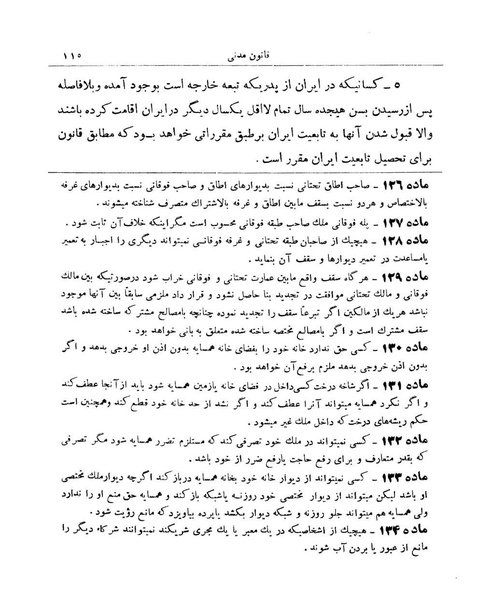 قانون مدنی ۱۱۵
۵ ـ کسانیکه در ایران از پدریکه تبعه خارجه است بوجود آمده وبلافاصله
پس ازرسیدن بسن هیجده سال تمام لااقل یکسال دیگر درایران اقامت کرده باشند
والا قبول شدن آنها به تابعیت ایران برطبق مقرراتی خواهد بود که مطابق قانون
برای تحصیل تابعیت ایران مقرر است .
ماده ۱۲۶ ـ صاحب اطاق تحتانی نسبت بدیوارهای اطاق و صاحب فوقانی نسبت بدیوارهای غرفه
بالاختصاص و هردو نسبت بسقف مابین اطاق و غرفه بالاشتراك متصرف شناخته میشوند .
ماده ۱۲۷ ـ پله فوقانی ملك صاحب طبقه فوقانی محسوب است مگراینکه خلاف آن ثابت شود .
ماده ۱۲۸ ـ هیچیك از صاحبان طبقه تحتانی و غرفه فوقانی نمیتواند دیگری را اجبار به تعمیر
یامساعدت در تعمیر دیوارها و سقف آن بنماید .
ماده ۱۲۹ ـ هرگاه سقف واقع مابین عمارت تحتانی و فوقانی خراب شود درصورتیکه بین مالك
فوقانی و مالك تحتانی موافقت در تجدید بنا حاصل نشود و قرار داد ملزمی سابقاً بین آنها موجود
نباشد هریك از مالکین اگر تبرعاً سقف را تجدید نموده چنانچه بامصالح مشترك ساخته شده باشد
سقف مشترك است و اگر بامصالح مختصه ساخته شده متعلق به بانی خواهد بود .
ماده ۱۳۰ ـ کسی حق ندارد خانه خود را بفضای خانه همسایه بدون اذن او خروجی بدهد و اگر
بدون اذن خروجی بدهد ملزم برفع آن خواهد بود .
ماده ۱۳۱ ـ اگرشاخه درخت کسی داخل در فضای خانه یازمین همسایه شود باید از آنجا عطف کند
و اگر نکرد همسایه میتواند آنرا عطف کند و اگر نشد از حد خانه خود قطع کند وهمچنین است
حکم ریشه‌های درخت که داخل ملك غیر میشود .
ماده ۱۳۲ ـ کسی نمیتواند در ملك خود تصرفی کند که مستلزم تضرر همسایه شود مگر تصرفی
که بقدر متعارف و برای رفع حاجت یارفع ضرر از خود باشد .
ماده ۱۳۳ ـ کسی نمیتواند از دیوار خانه خود بخانه همسایه دربازکند اگرچه دیوارملك مختصی
او باشد لیکن میتواند از دیوار مختصی خود روزنه یاشبکه بازکند و همسایه حق منع او را ندارد
ولی همسایه هم میتواند جلو روزنه و شبکه دیوار بکشد یاپرده بیاویزد که مانع رؤیت شود .
ماده ۱۳۴ ـ هیچیك از اشخاصیکه در یك معبر یا یك مجری شریکند نمیتوانند شرکاء دیگر را
مانع از عبور یا بردن آب شوند .